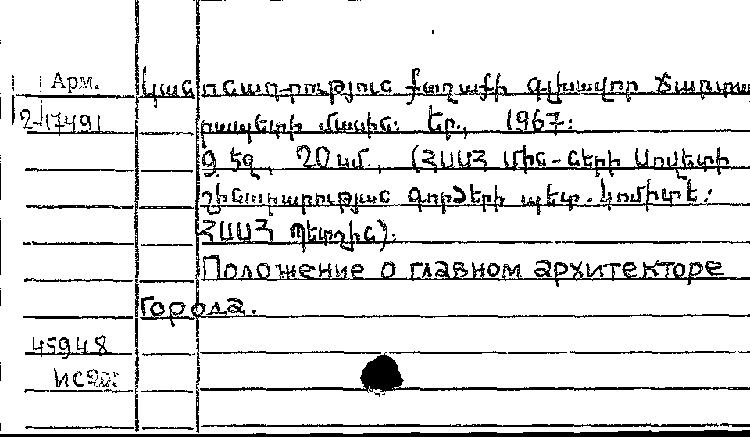 Арм.
2-17491
Կանոնադրություն քաղաքի գլխավոր ճարտա
րապետի մասին: Եր., 1967:
9 էջ, 20 սմ., (ՀՍՍՀ Մին-ների Սովետի
շինարարության գործերի պետ. կոմիտե:
ՀՍՍՀ Պետշին):
Положение о главном архитекторе
города.
45948